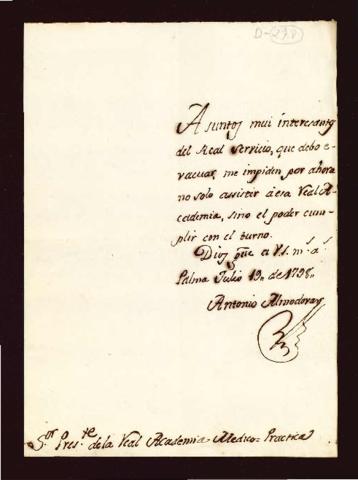 D-298
Asuntos mui interesantes
del Real Servicio, que debo e-
vacuar, me impiden por ahora
no solo assistir á esa Real A-
cademia, sino el poder cum-
plir con el turno.
Dios gue a V.S. ms as
Palma Julio 19,, de 1798,,
Antonio Almodovar
Sor Preste de la Real Academia Medico-Practica